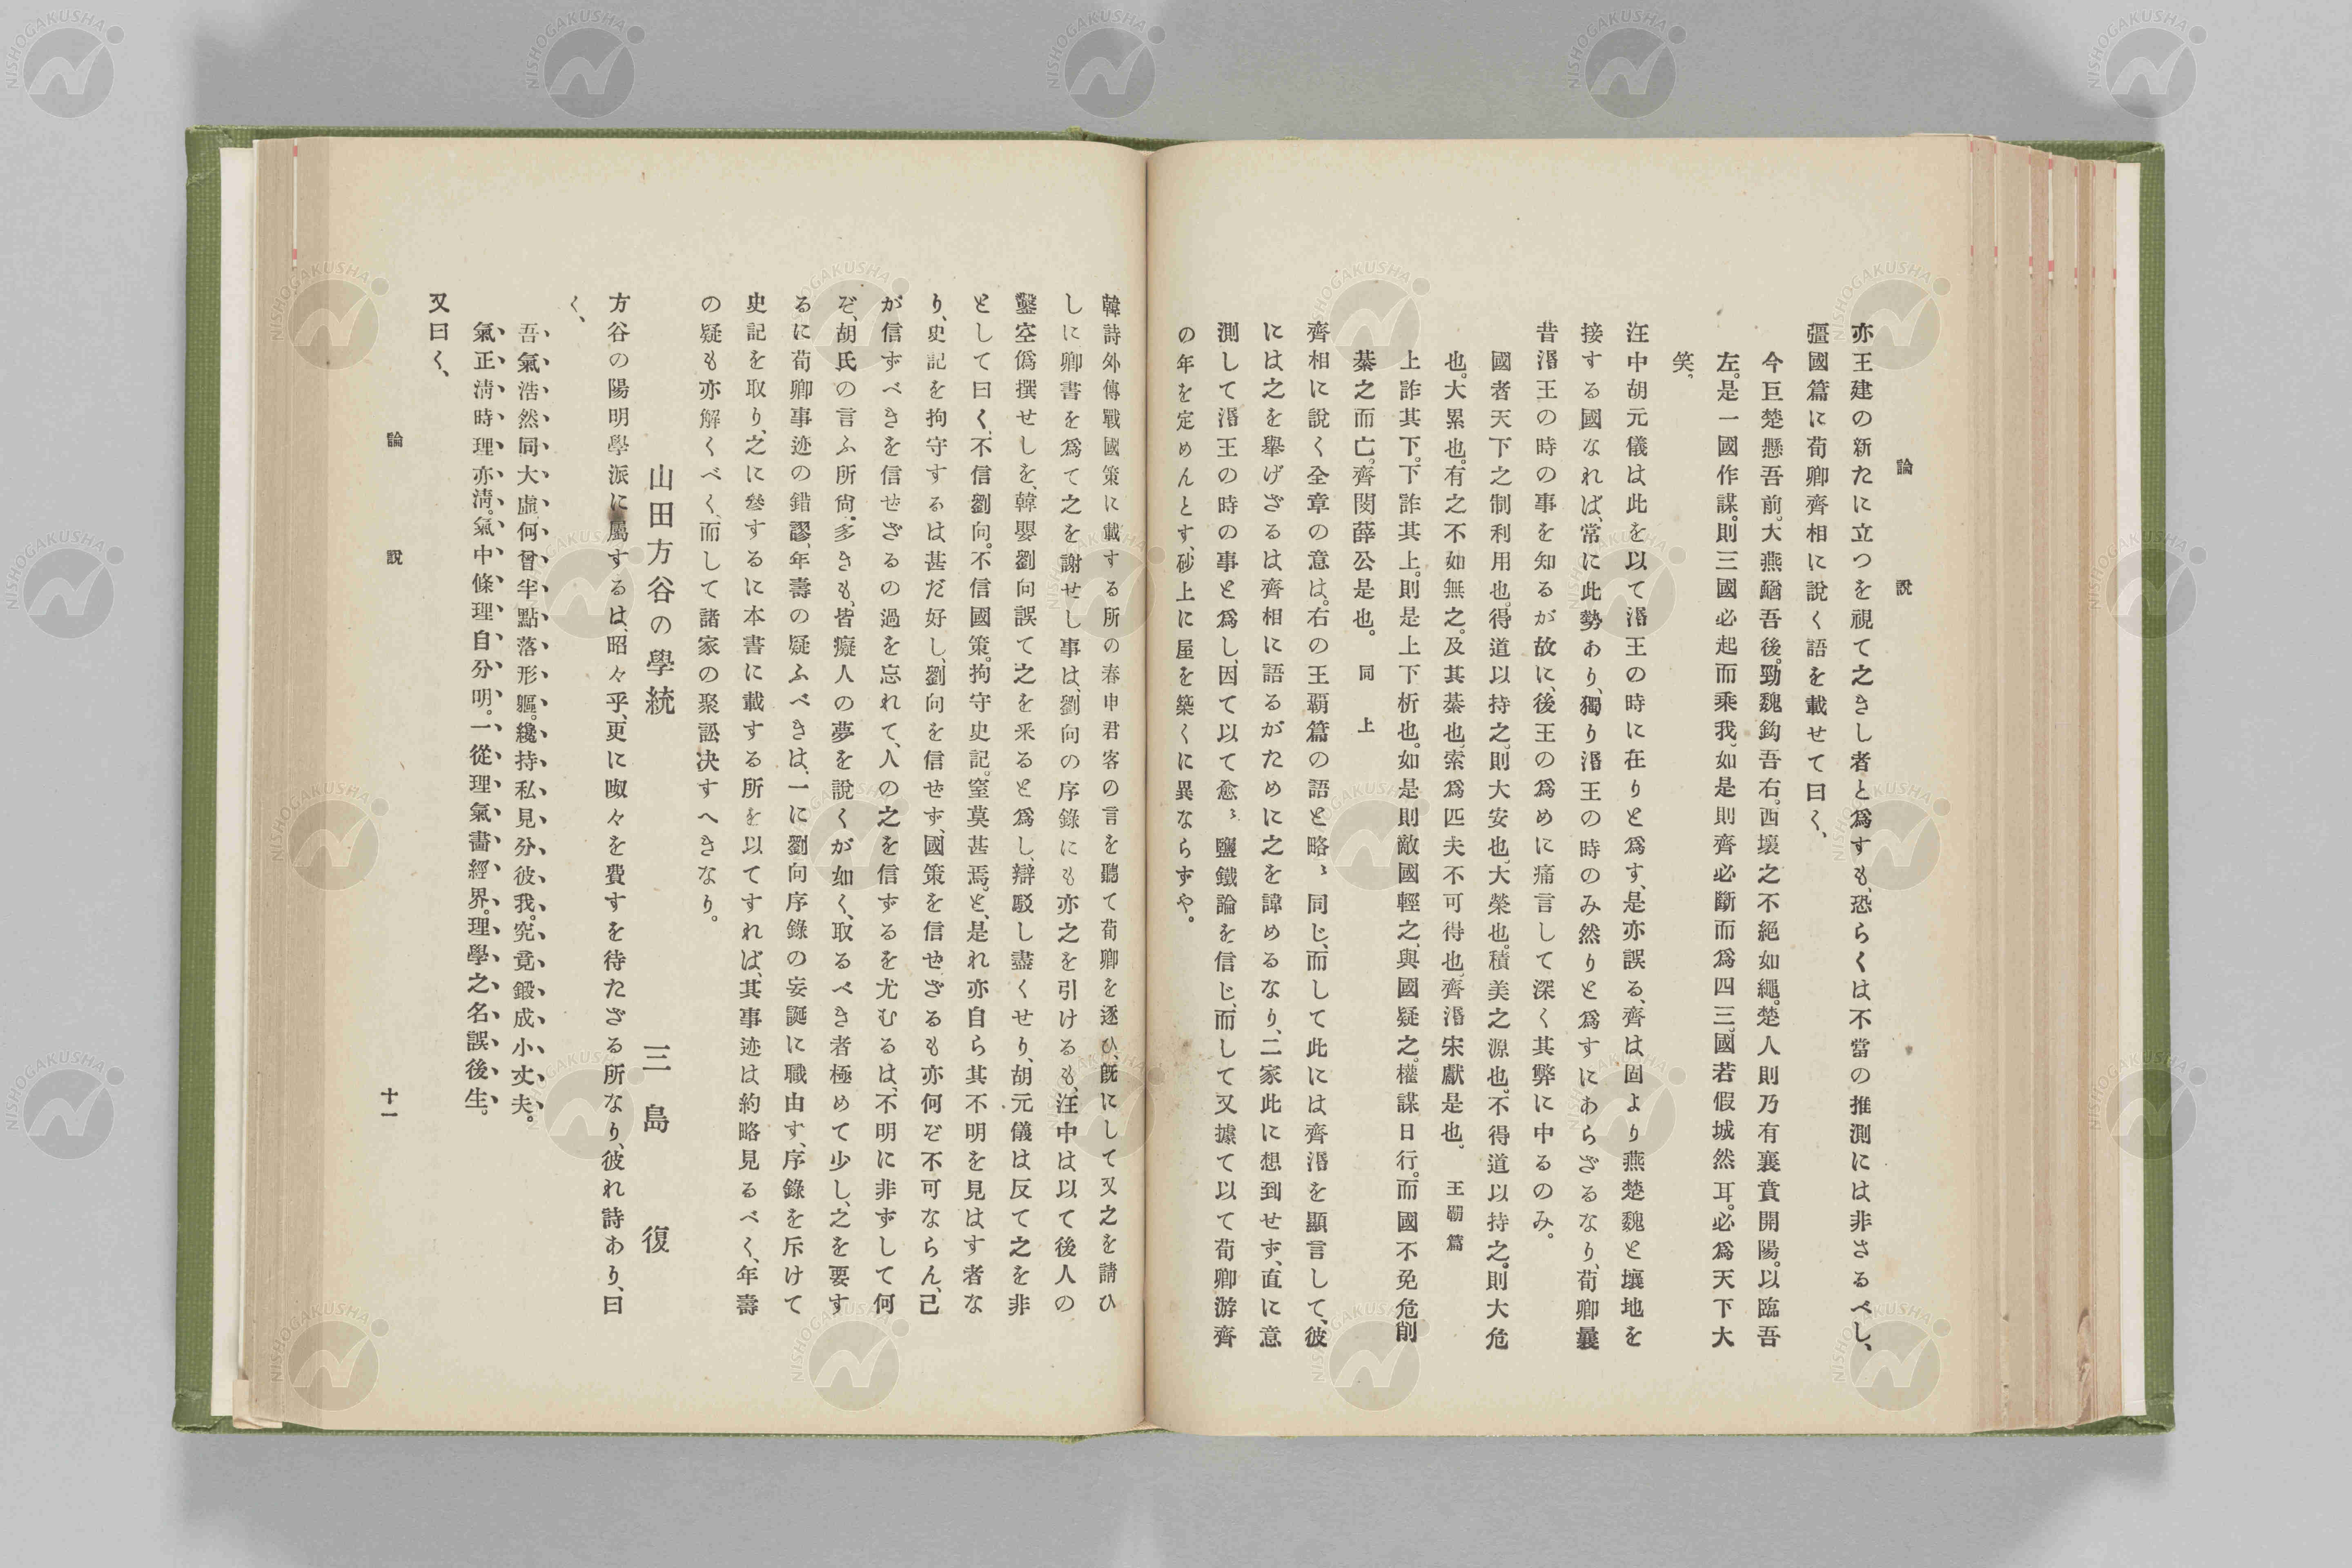 論說
亦王建の新たに立つを視て之きし者と爲すも、恐らくは不當の推測には非さるべし、
彊國篇に荀卿齊相に說く語を載せて曰く、
今巨楚懸吾前。大燕鰌吾後。勁魏鈎吾右。西壤之不絕如繩。楚人則乃有襄賁開陽。以臨吾
左。是一國作謀。則三國必起而乘我。如是則齊必斷而爲四三。國若假城然耳。必爲天下大
笑。
汪中胡元儀は此を以て湣王の時に在りと爲す、是亦誤る、齊は固より燕楚魏と壤地を
接する國なれば、常に此勢あり、獨り湣王の時のみ然りと爲すにあらざるなり、荀卿曩
昔湣王の時の事を知るが故に、後王の爲めに痛言して深く其弊に中るのみ。
國者天下之制利用也。得道以持之。則大安也。大榮也。積美之源也。不得道以持之。則大危
也。大累也。有之不如無之。及其綦也。索爲匹夫不可得也。齊湣宋獻是也。 王霸篇
上詐其下。下詐其上。則是上下析也。如是則敵國輕之。與國疑之。權謀日行。而國不免危削
綦之而亡。齊閔薛公是也。 同上
齊相に說く全章の意は。右の王覇篇の語と略〻同じ、而して此には齊湣を顯言して、彼
には之を擧げざるは齊相に語るがために之を諱めるなり、二家此に想到せず、直に意
測して湣王の時の事と爲し、因て以て愈〻鹽鐵論を信じ、而して又據て以て荀卿游齊
の年を定めんとす、砂上に屋を築くに異ならずや。
韓詩外傳戰國策に載する所の春申君客の言を聽て荀卿を逐ひ、旣にして又之を請ひ
しに卿書を爲て之を謝せし事は、劉向の序錄にも亦之を引けるも、汪中は以て後人の
鑿空僞撰せしを、韓嬰劉向誤て之を釆ると爲し、辯駁し盡くせり、胡元儀は反て之を非
として曰く、不信劉向。不信國策。拘守史記。窒莫甚焉。と、是れ亦自ら其不明を見はす者な
り、史記を拘守するは甚だ好し、劉向を信せず、國策を信せざるも亦何ぞ不可ならん、己
が信ずべきを信せざるの過を忘れて、人の之を信ずるを尤むるは、不明に非ずして何
ぞ、胡氏の言ふ所尙多きも、皆癡人の夢を說くが如く、取るべき者極めて少し、之を要す
るに荀卿事迹の錯謬、年壽の疑ふべきは、一に劉向序錄の妄誕に職由す、序錄を斥けて
史記を取り、之に參するに本書に載する所を以てすれば、其事迹は約略見るべく、年壽
の疑も亦解くべく、而して諸家の聚訟决すへきなり。
山田方谷の學統 三島復
方谷の陽明學派に屬するは、昭々乎、更に呶々を費すを待たざる所なり、彼れ詩あり、曰
く、
吾氣浩然同大虛。何曾半點落形軀。纔持私見分彼我。究竟鍛成小丈夫。
氣正淸時理亦淸。氣中條理自分明。一從理氣畵經界。理學之名誤後生。
又曰く、
論說
十一